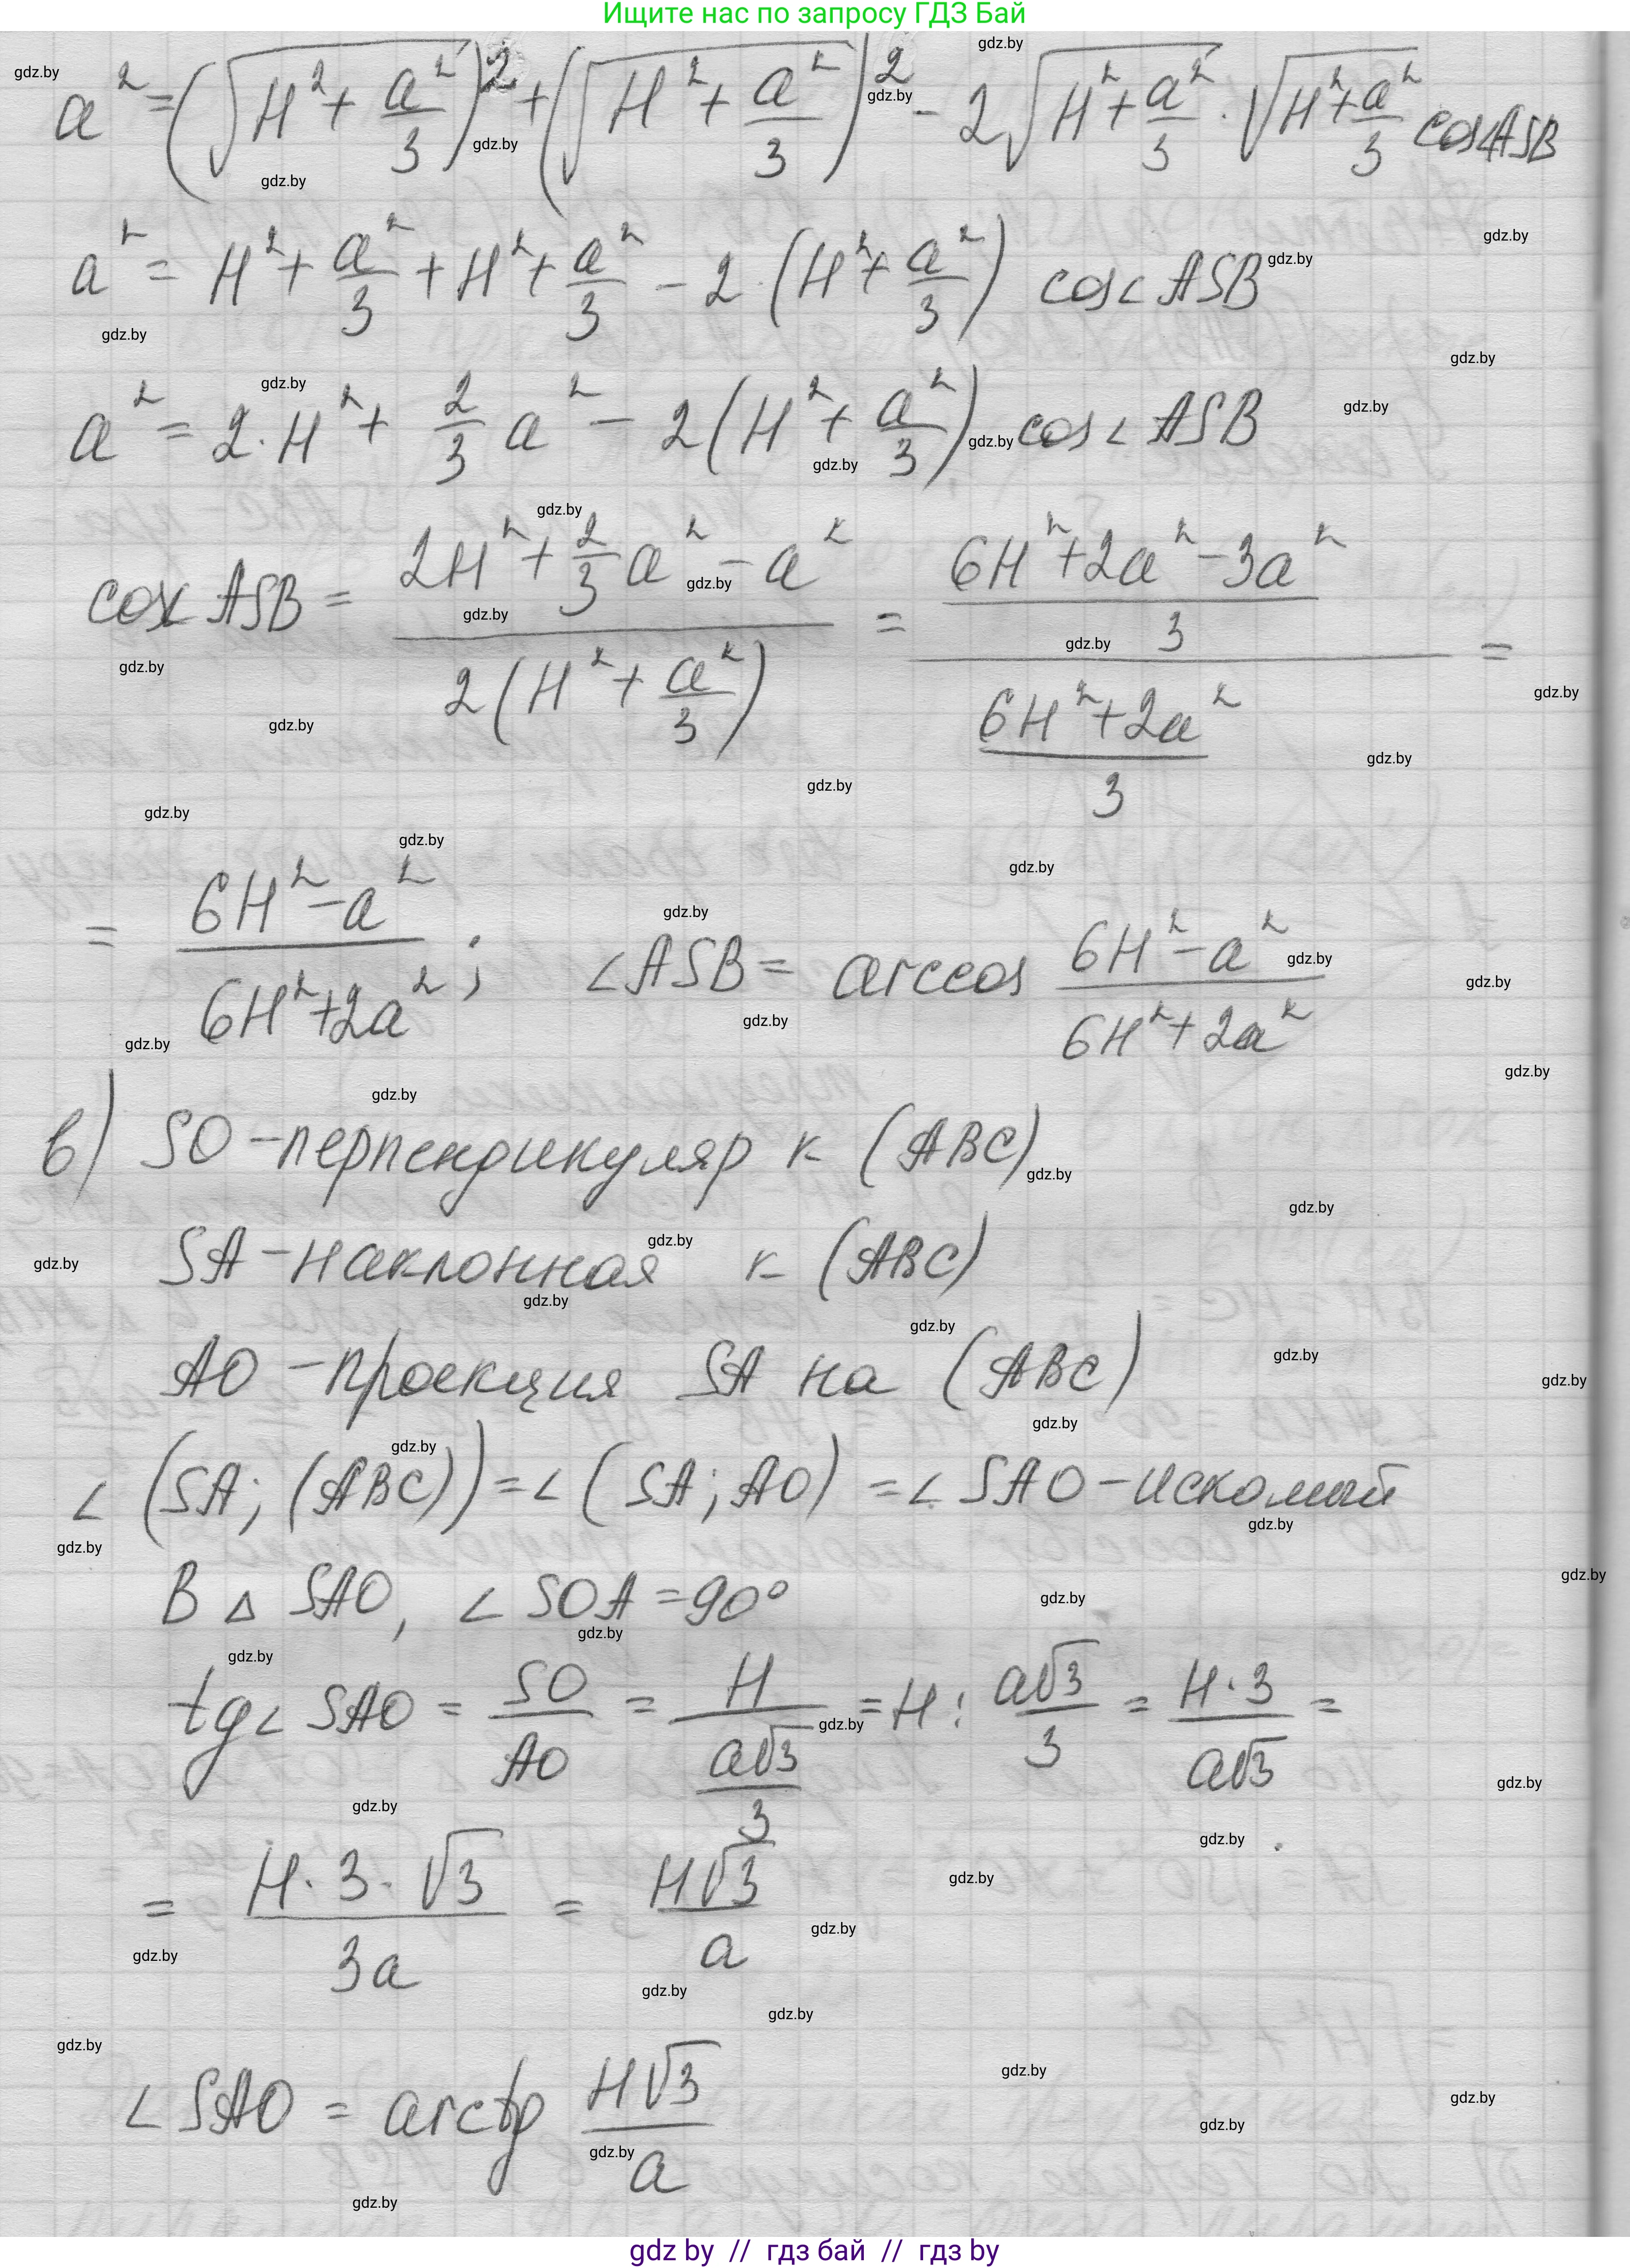 Ищите нас по запросу ГДЗ Бай
a² = (√(H² + a²/3))² + (√(H² + a²/3))² - 2√(H² + a²/3) · √(H² + a²/3) cos∠ASB
a² = H² + a²/3 + H² + a²/3 - 2·(H² + a²/3) cos∠ASB
a² = 2·H² + 2/3 a² - 2(H² + a²/3) cos∠ASB
cos∠ASB = (2H² + 2/3 a² - a²)/(2(H² + a²/3)) = ((6H² + 2a² - 3a²)/3)/((6H² + 2a²)/3) =
= (6H² - a²)/(6H² + 2a²); ∠ASB = arccos (6H² - a²)/(6H² + 2a²)
в) SO - перпендикуляр к (ABC)
SA - наклонная к (ABC)
AO - проекция SA на (ABC)
∠(SA; (ABC)) = ∠(SA; AO) = ∠SAO - искомый
В △ SAO, ∠SOA = 90°
tg∠SAO = SO/AO = H/(a√3/3) = H : a√3/3 = H·3/a√3 =
= H·3·√3/3a = H√3/a
∠SAO = arctg H√3/a
gdz by // гдз бай // gdz by